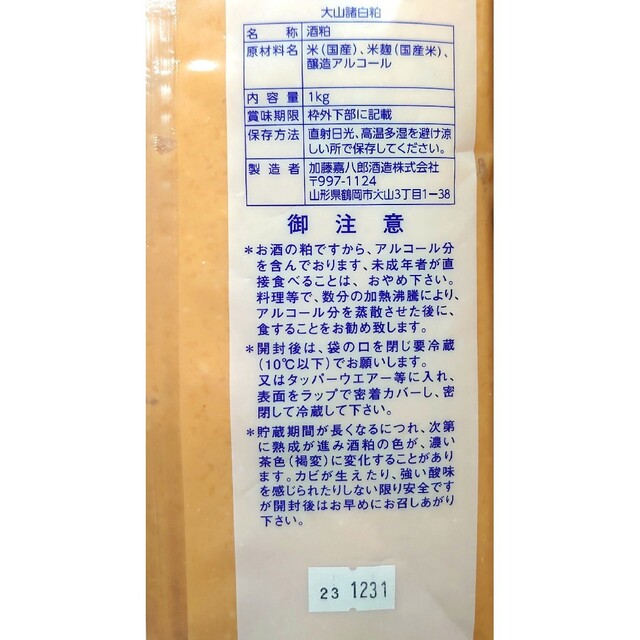 大山諸白粕
名称 酒粕
原材料名 米(国産)、米麹(国産米)、
醸造アルコール
内容量 1kg
賞味期限 枠外下部に記載
保存方法 直射日光、高温多湿を避け涼
しい所で保存してください。
製造者 加藤嘉八郎酒造株式会社
〒997-1124
山形県鶴岡市大山3丁目1-38
御注意
*お酒の粕ですから、アルコール分
を含んでおります、未成年者が直
接食べることは、おやめ下さい。
料理等で、数分の加熱沸騰により、
アルコール分を蒸散させた後に、
食することをお勧め致します。
*開封後は、袋の口を閉じ要冷蔵
(10℃以下)でお願いします。
又はタッパーウエアー等に入れ、
表面をラップで密着カバーし、密
閉して冷蔵して下さい。
*貯蔵期間が長くなるにつれ、次第
に熟成が進み酒粕の色が、濃い
茶色(褐変)に変化することがあり
ます。カビが生えたり、強い酸味
を感じられたりしない限り安全です
が開封後はお早めにお召しあがり
下さい。
23 1231